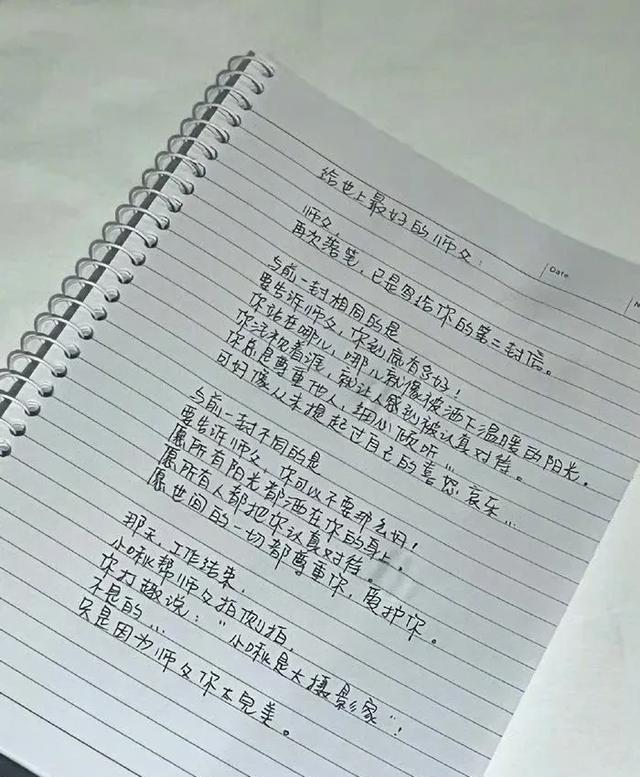 给世上最好的师父：
Date
师父，
再次落笔，已是写给你的第二封信。
与前一封相同的是
要告诉师父，你到底有多好！
你站在哪儿，哪儿就像被洒下温暖的阳光。
你注视着谁，就让人感到被认真对待。
你总是尊重他人，细心倾听…
可好像从未提起过自己的喜怒哀乐…
与前一封不同的是
要告诉师父，你可以不要那么好！
愿所有阳光都洒在你的身上，
愿所有人都把你认真对待。
愿世间的一切都尊重你，爱护你。
那天，工作结束，
小啾帮师父拍侧拍，
你打趣说：“小啾是大摄影家”！
不是的…
只是因为师父你太完美。